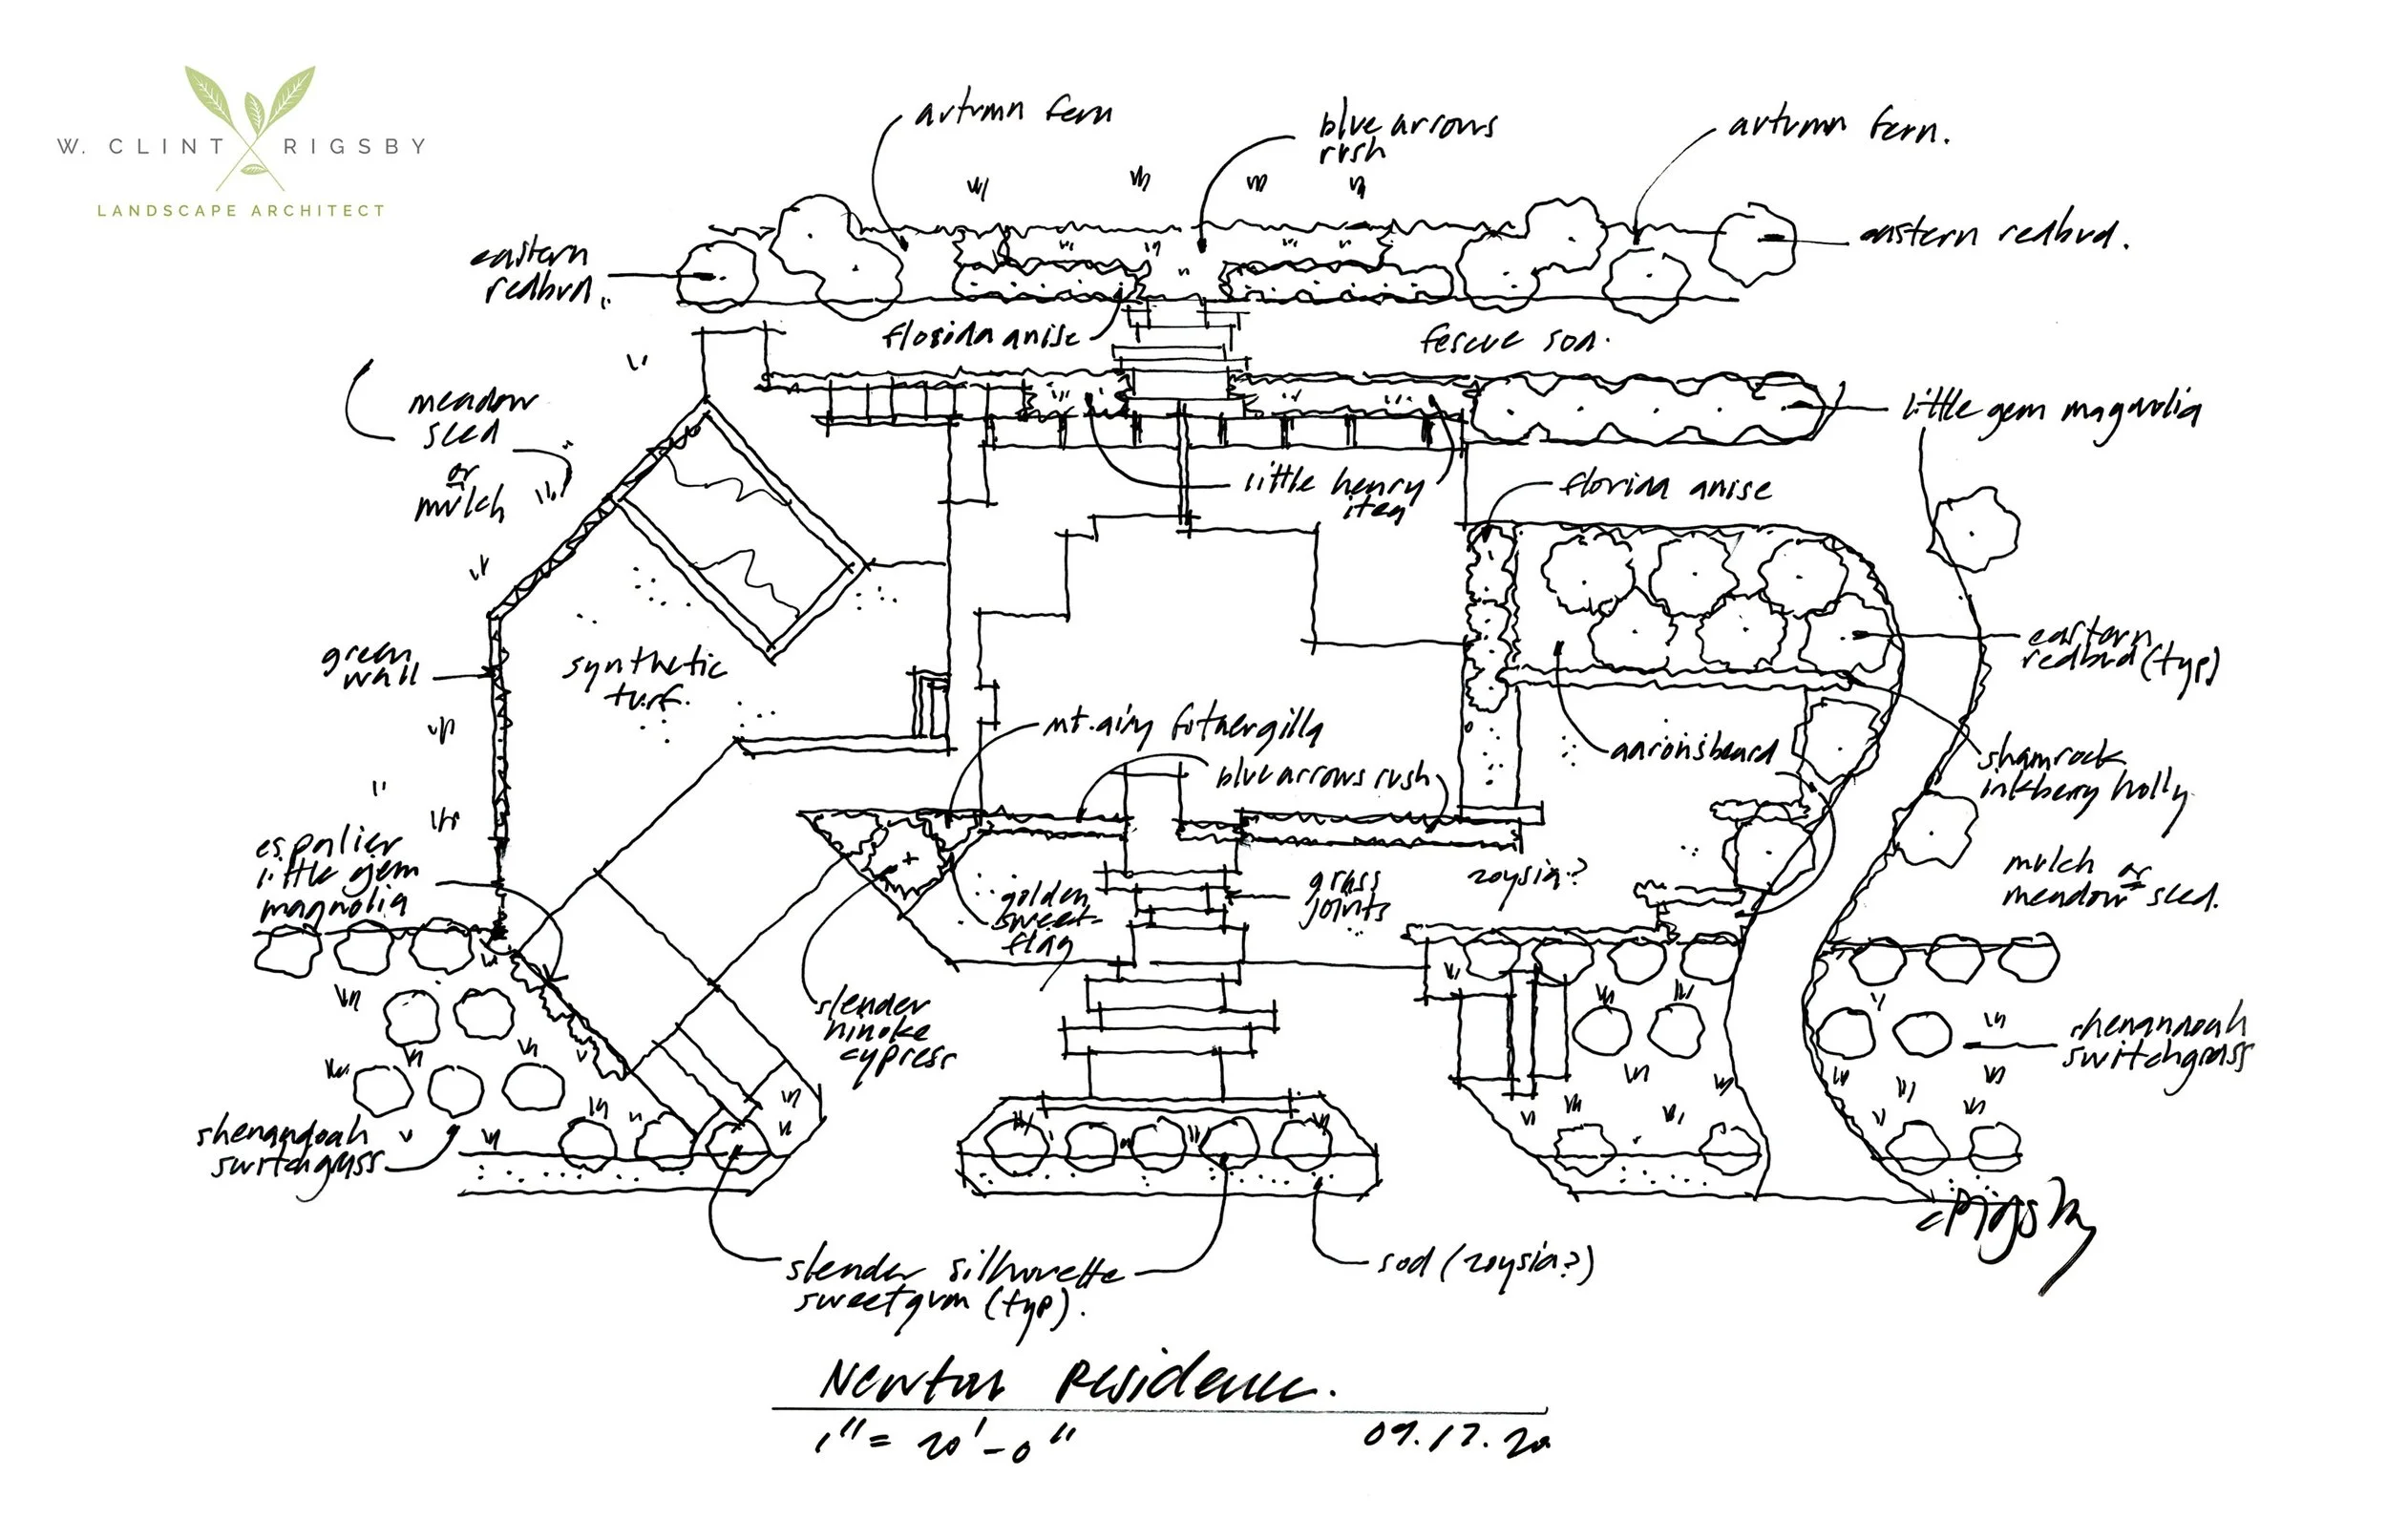 W. CLINT RIGSBY
LANDSCAPE ARCHITECT
autumn fern
blue arrows
rush
autumn fern.
eastern
redbud.
eastern redbud.
florida anise
fescue sod.
meadow
seed
or
mulch
little gem magnolia
little henry
itea
florida anise
green
wall
synthetic
turf.
eastern
redbud (typ)
mt. airy fothergilla
blue arrows rush
aaronsbeard
shamrock
inkberry holly
espalier
little gem
magnolia
golden
sweet-
flag
grass
joints
zoysia?
mulch or
meadow seed.
slender
hinoke
cypress
shenandoah
switchgrass
shenandoah
switchgrass
CRigsby
slender silhouette
sweetgum (typ).
sod (zoysia?)
Newton Residence.
1" = 20'-0"
09.17.20